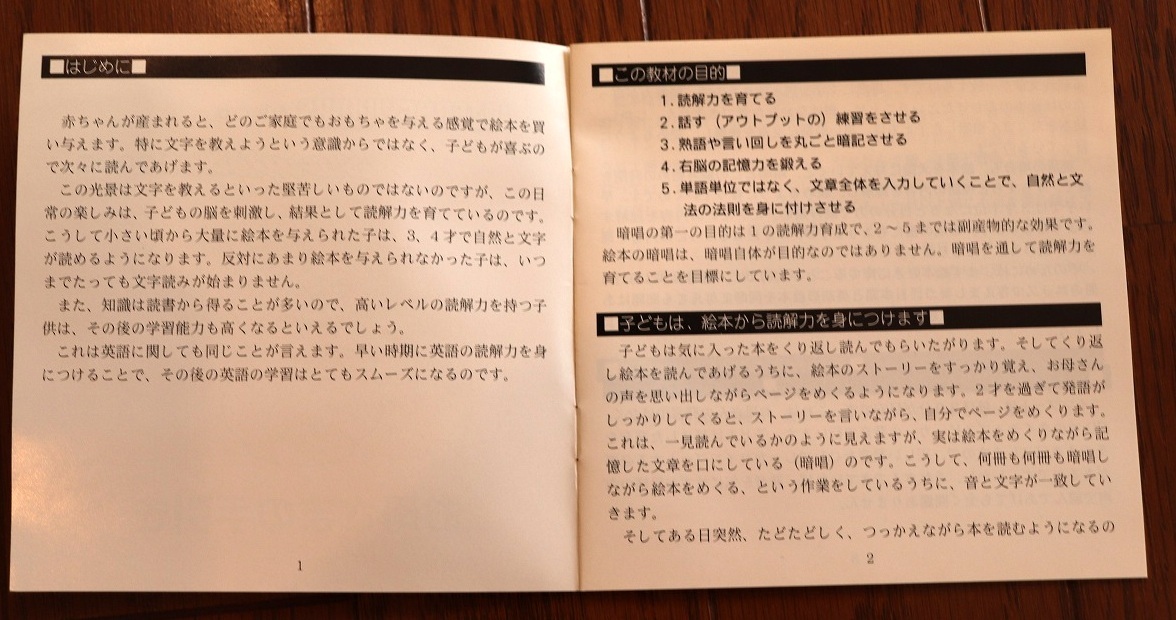 ■はじめに■
赤ちゃんが産まれると、どのご家庭でもおもちゃを与える感覚で絵本を買
い与えます。特に文字を教えようという意識からではなく、子どもが喜ぶの
で次々に読んであげます。
この光景は文字を教えるといった堅苦しいものではないのですが、この日
常の楽しみは、子どもの脳を刺激し、結果として読解力を育てているのです。
こうして小さい頃から大量に絵本を与えられた子は、3、4才で自然と文字
が読めるようになります。反対にあまり絵本を与えられなかった子は、いつ
までたっても文字読みが始まりません。
また、知識は読書から得ることが多いので、高いレベルの読解力を持つ子
供は、その後の学習能力も高くなるといえるでしょう。
これは英語に関しても同じことが言えます。早い時期に英語の読解力を身
につけることで、その後の英語の学習はとてもスムーズになるのです。
1
■この教材の目的■
1.読解力を育てる
2.話す（アウトプットの）練習をさせる
3.熟語や言い回しを丸ごと暗記させる
4.右脳の記憶力を鍛える
5.単語単位ではなく、文章全体を入力していくことで、自然と文
法の法則を身に付けさせる
暗唱の第一の目的は1の読解力育成で、2～5までは副産物的な効果です。
絵本の暗唱は、暗唱自体が目的なのではありません。暗唱を通して読解力を
育てることを目標にしています。
■子どもは、絵本から読解力を身につけます■
子どもは気に入った本をくり返し読んでもらいたがります。そしてくり返
し絵本を読んであげるうちに、絵本のストーリーをすっかり覚え、お母さん
の声を思い出しながらページをめくるようになります。2才を過ぎて発語が
しっかりしてくると、ストーリーを言いながら、自分でページをめくります。
これは、一見読んでいるかのように見えますが、実は絵本をめくりながら記
憶した文章を口にしている（暗唱）のです。こうして、何冊も何冊も暗唱し
ながら絵本をめくる、という作業をしているうちに、音と文字が一致してい
きます。
そしてある日突然、たどたどしく、つっかえながら本を読むようになるの
2